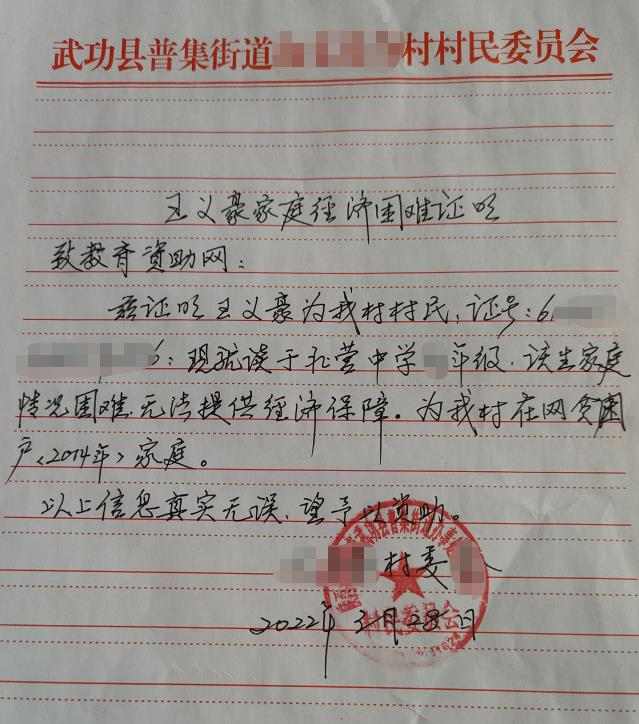 武功县普集街道 村村民委员会
王义豪家庭经济困难证明
致教育资助网：
兹证明王义豪为我村村民，证号：6
6：现就读于 营中学 年级，该生家庭
情况困难，无法提供经济保障。为我村在网贫困
户〈2014年〉家庭。
以上信息真实无误，望予以资助。
武功县普集街道办事处
村委
村民委员会
2022年3月28日